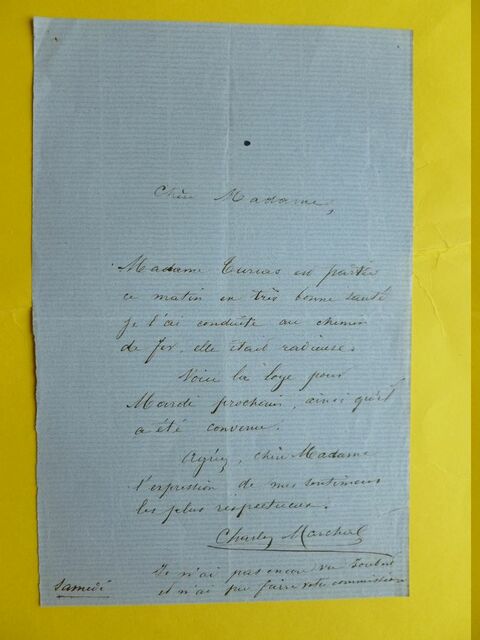 Chère Madame,
Madame Turcas est partie
ce matin en très bonne santé
je l'ai conduite au chemin
de fer. elle était radieuse.
Voici la loge pour
Mardi prochain, ainsi qu'il
a été convenu.
Agréez, chère Madame
l'expression de mes sentimens
les plus respectueux.
Charles Marchal
Je n'ai pas encore vu
et n'ai pu faire votre commission
Samedi